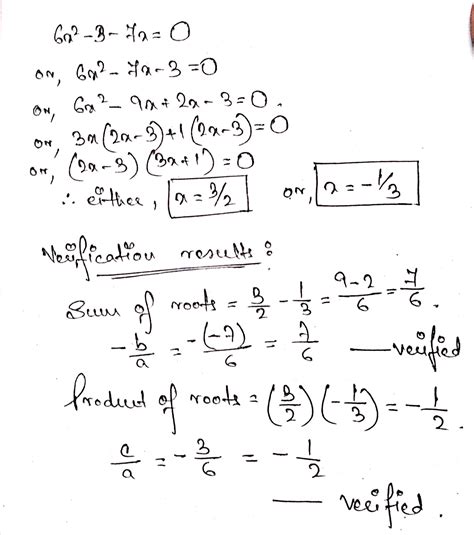 6x² - 3 - 7x = 0
or, 6x² - 7x - 3 = 0
or, 6x² - 9x + 2x - 3 = 0.
or, 3x(2x-3)+1(2x-3)=0
or, (2x-3)(3x+1)=0
∴ either, x = 3/2 or, x = -1/3
Verification results:
Sum of roots = 3/2 - 1/3 = (9-2)/6 = 7/6.
-b/a = -(-7)/6 = 7/6 — verified
Product of roots = (3/2)(-1/3) = -1/2.
c/a = -3/6 = -1/2
— verified.